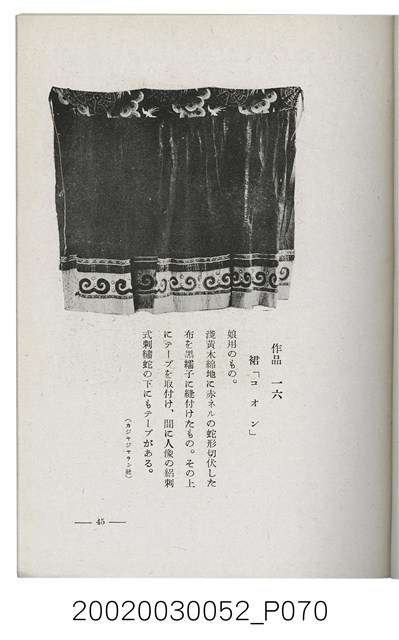 作品 一六
裙「コオン」
娘用のもの。
淺黃木綿地に赤ネルの蛇形切伏した
布を黑繻子に縫付けたもの。その上
にテープを取付け、間に人像の絽刺
式刺繡蛇の下にもテープがある。
(カジヤジヤラン社)
— 45 —
20020030052_P070